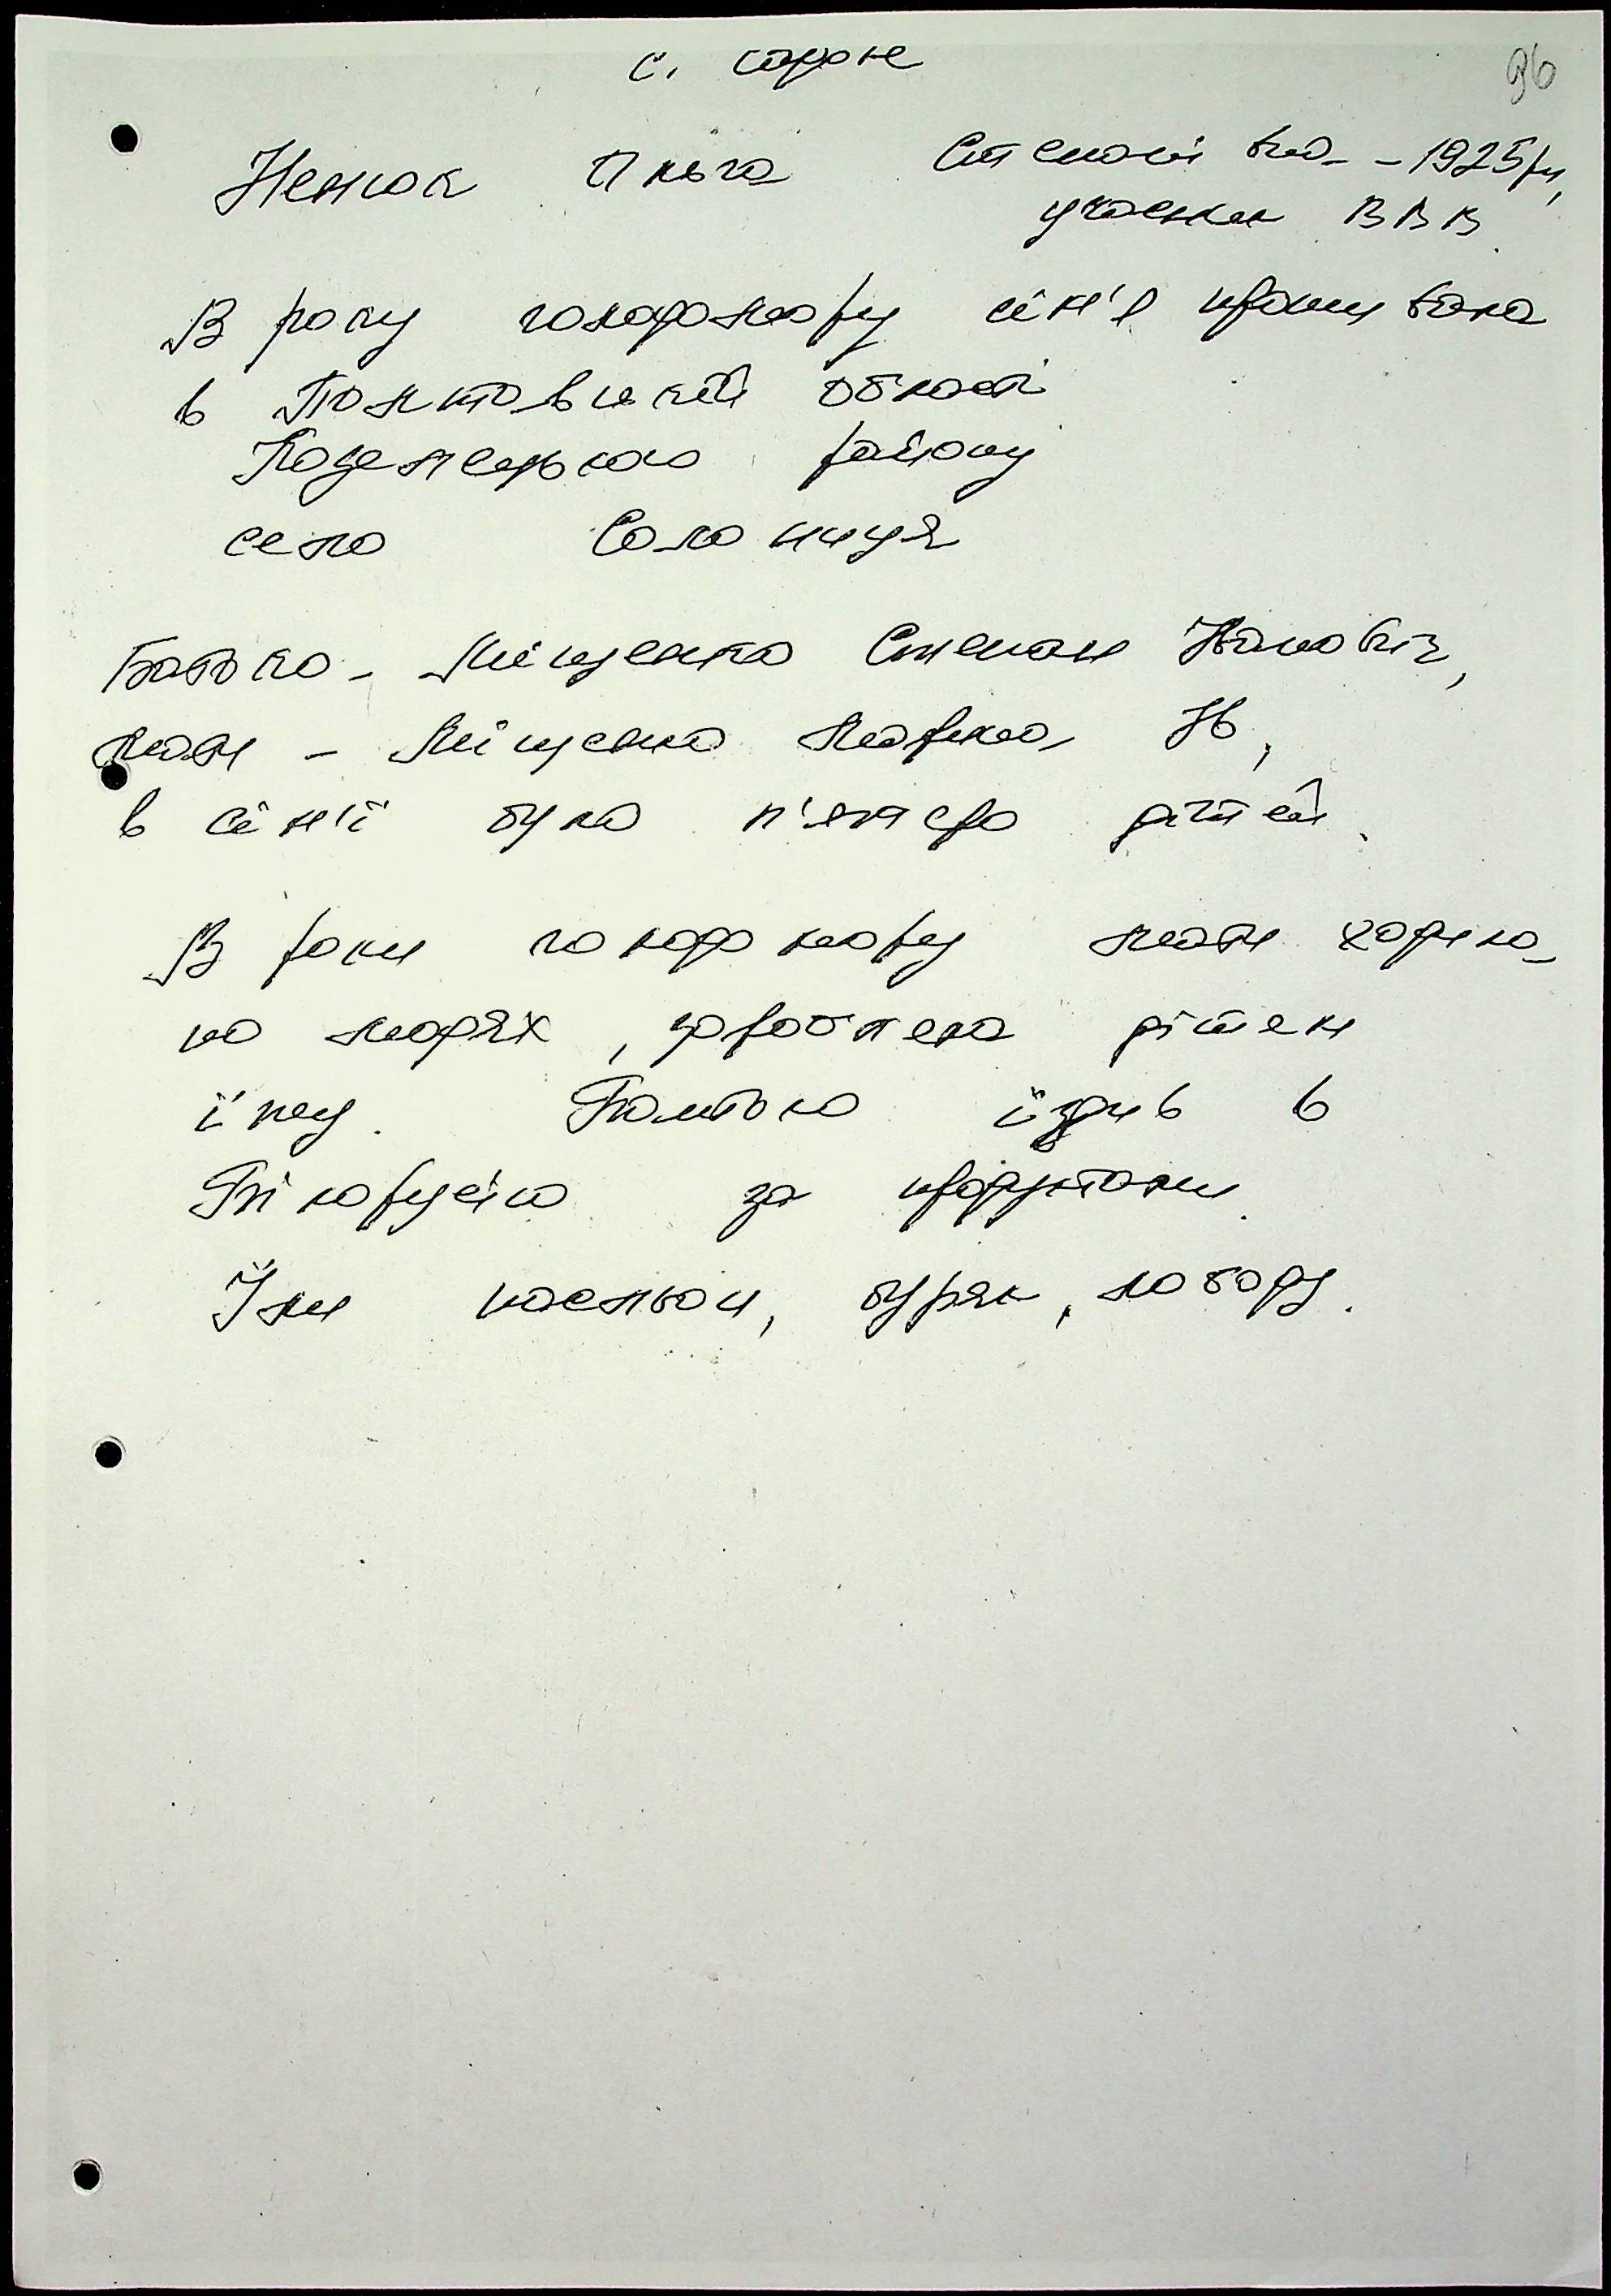 с. Ставне
96
Немок Ольга Степанівна - 1925 рн,
учасник ВВВ.
В року голодомору сім'я проживала
в Полтавській області
Козельського району
село Солониця
Батько - Міщенко Степан Іванович,
мати - Міщенко Марина Ів,
в сім'ї було п'ятеро дітей.
В роки голодомору мати ходила
по людях, заробляла дітям
їжу. Батько їздив в
Білорусію за продуктами.
Їли квасолю, буряк, лободу.